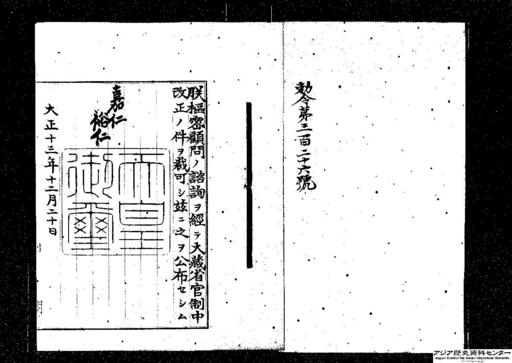 勅令第三百二十六號
朕樞密顧問ノ諮詢ヲ經テ大藏省官制中
改正ノ件ヲ裁可シ玆ニ之ヲ公布セシム
嘉仁
裕仁
天皇
御璽
大正十三年十二月二十日
アジア歴史資料センター
Japan Center for Asian Historical Records